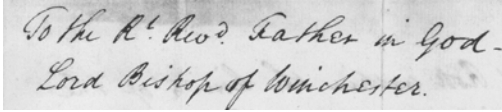 To the Rt. Revd. Father in God -
Lord Bishop of Winchester.